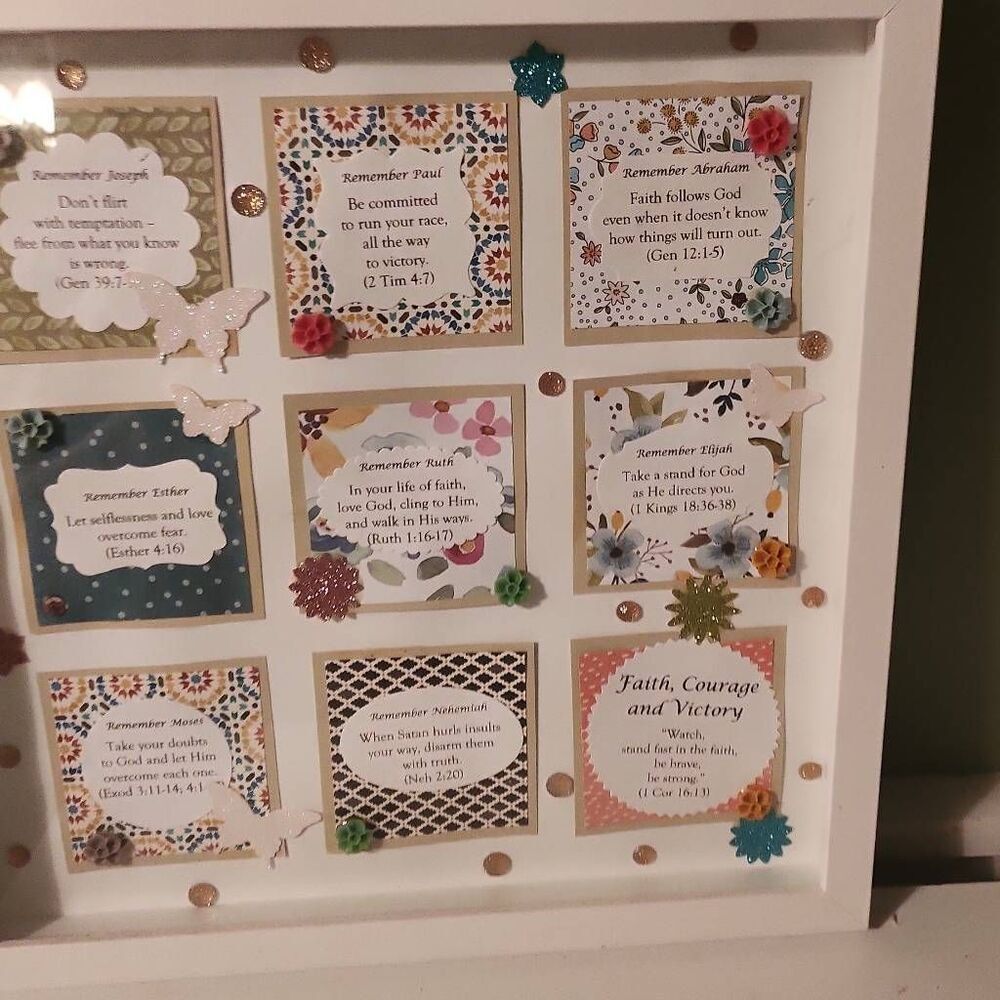 Remember Joseph
Don't flirt
with temptation –
flee from what you know
is wrong.
(Gen 39:7-
Remember Paul
Be committed
to run your race,
all the way
to victory.
(2 Tim 4:7)
Remember Abraham
Faith follows God
even when it doesn't know
how things will turn out.
(Gen 12:1-5)
Remember Esther
Let selflessness and love
overcome fear.
(Esther 4:16)
Remember Ruth
In your life of faith,
love God, cling to Him,
and walk in His ways.
(Ruth 1:16-17)
Remember Elijah
Take a stand for God
as He directs you.
(1 Kings 18:36-38)
Remember Moses
Take your doubts
to God and let Him
overcome each one.
(Exod 3:11-14; 4:1
Remember Nehemiah
When Satan hurls insults
your way, disarm them
with truth.
(Neh 2:20)
Faith, Courage
and Victory
"Watch,
stand fast in the faith,
be brave,
be strong."
(1 Cor 16:13)